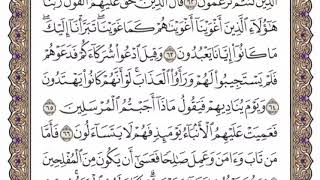 ٱلَّذِينَ كُنتُمۡ تَزۡعُمُونَ ٦٢ قَالَ ٱلَّذِينَ حَقَّ عَلَيۡهِمُ ٱلۡقَوۡلُ رَبَّنَا
هَٰٓؤُلَآءِ ٱلَّذِينَ أَغۡوَيۡنَآ أَغۡوَيۡنَٰهُمۡ كَمَا غَوَيۡنَاۖ تَبَرَّأۡنَآ إِلَيۡكَۖ
مَا كَانُوٓاْ إِيَّانَا يَعۡبُدُونَ ٦٣ وَقِيلَ ٱدۡعُواْ شُرَكَآءَكُمۡ فَدَعَوۡهُمۡ
فَلَمۡ يَسۡتَجِيبُواْ لَهُمۡ وَرَأَوُاْ ٱلۡعَذَابَۚ لَوۡ أَنَّهُمۡ كَانُواْ يَهۡتَدُونَ
٦٤ وَيَوۡمَ يُنَادِيهِمۡ فَيَقُولُ مَاذَآ أَجَبۡتُمُ ٱلۡمُرۡسَلِينَ ٦٥
فَعَمِيَتۡ عَلَيۡهِمُ ٱلۡأَنۢبَآءُ يَوۡمَئِذٖ فَهُمۡ لَا يَتَسَآءَلُونَ ٦٦ فَأَمَّا
مَن تَابَ وَءَامَنَ وَعَمِلَ صَٰلِحٗا فَعَسَىٰٓ أَن يَكُونَ مِنَ ٱلۡمُفۡلِحِينَ